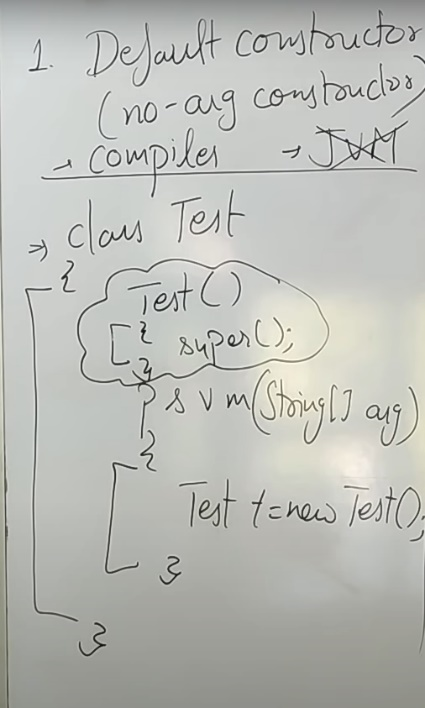 1. Default constructor
(no-arg constructor)
→ compiler → JVM
⇒ class Test
{
Test()
{ super();
}
p s v m(String[] arg)
{
Test t=new Test();
}
}